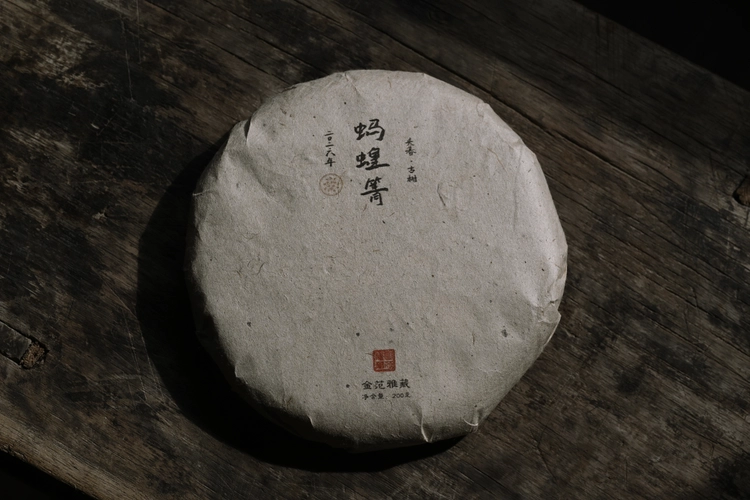 头春·古树
蚂蝗箐
二〇一六年
金范雅藏
净含量 200克